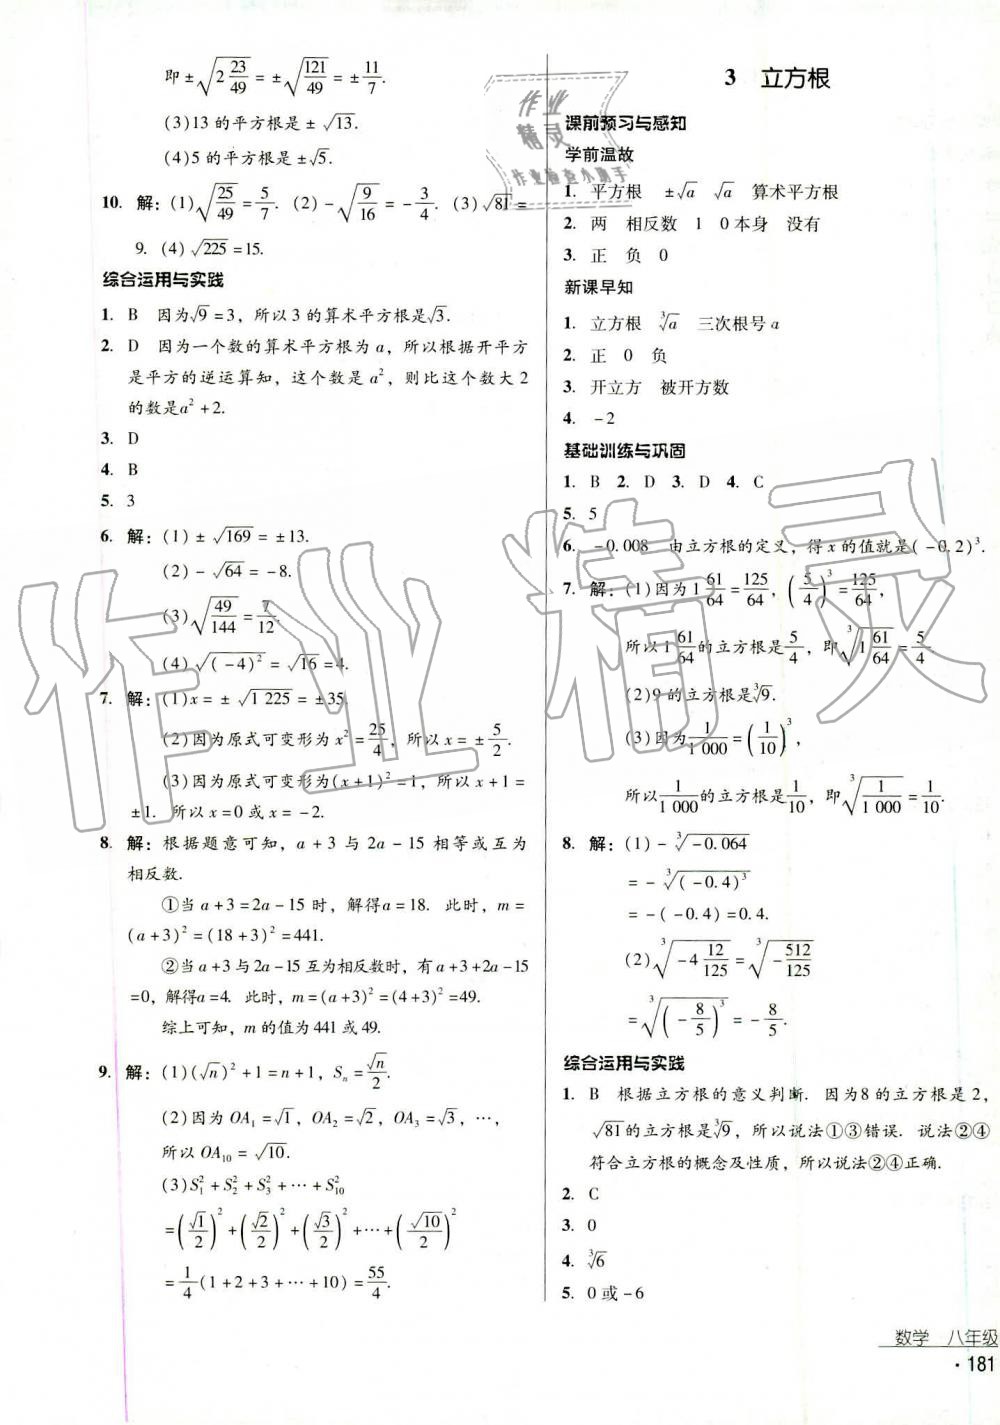 即 ±√(2 23/49) = ±√(121/49) = ±11/7.
(3)13 的平方根是 ±√13.
(4)5 的平方根是 ±√5.
10. 解：(1)√(25/49) = 5/7. (2) -√(9/16) = -3/4. (3)√81 =
9. (4)√225 = 15.
综合运用与实践
1. B 因为√9 = 3，所以 3 的算术平方根是√3.
2. D 因为一个数的算术平方根为 a，所以根据开平方
是平方的逆运算知，这个数是 a²，则比这个数大 2
的数是a² + 2.
3. D
4. B
5. 3
6. 解：(1) ±√169 = ±13.
(2) -√64 = -8.
(3)√(49/144) = 7/12.
(4)√((-4)²) = √16 = 4.
7. 解：(1)x = ±√1 225 = ±35.
(2)因为原式可变形为 x² = 25/4，所以 x = ±5/2.
(3)因为原式可变形为(x+1)² = 1，所以 x + 1 =
±1. 所以 x = 0或 x = -2.
8. 解：根据题意可知，a + 3 与 2a - 15 相等或互为
相反数.
①当 a + 3 = 2a - 15 时，解得a = 18. 此时，m =
(a+3)² = (18+3)² = 441.
②当 a+3 与 2a-15 互为相反数时，有a+3+2a-15
=0，解得a=4. 此时，m = (a+3)² = (4+3)² = 49.
综上可知，m 的值为 441 或 49.
9. 解：(1)(√n)² + 1 = n + 1，Sₙ = √n/2.
(2)因为 OA₁ = √1，OA₂ = √2，OA₃ = √3，…，
所以 OA₁₀ = √10.
(3)S₁² + S₂² + S₃² + … + S₁₀²
= (√1/2)² + (√2/2)² + (√3/2)² + … + (√10/2)²
= 1/4(1+2+3+…+10) = 55/4.
3 立方根
课前预习与感知
学前温故
1. 平方根 ±√a √a 算术平方根
2. 两 相反数 1 0 本身 没有
3. 正 负 0
新课早知
1. 立方根 ∛a 三次根号 a
2. 正 0 负
3. 开立方 被开方数
4. -2
基础训练与巩固
1. B 2. D 3. D 4. C
5. 5
6. -0.008 由立方根的定义，得 x 的值就是(-0.2)³.
7. 解：(1)因为 1 61/64 = 125/64，(5/4)³ = 125/64，
所以 1 61/64 的立方根是 5/4，即∛(1 61/64) = 5/4.
(2)9 的立方根是∛9.
(3)因为 1/1 000 = (1/10)³，
所以 1/1 000 的立方根是 1/10，即∛(1/1 000) = 1/10.
8. 解：(1) -∛(-0.064)
= -∛((-0.4)³)
= -(-0.4) = 0.4.
(2)∛(-4 12/125) = ∛(-512/125)
= ∛((-8/5)³) = -8/5.
综合运用与实践
1. B 根据立方根的意义判断. 因为8的立方根是 2，
√81的立方根是∛9，所以说法①③错误. 说法②④
符合立方根的概念及性质，所以说法②④正确.
2. C
3. 0
4. ∛6
5. 0 或 -6
数学 八年级
·181
作业精灵
作业
精灵
作业检查小助手